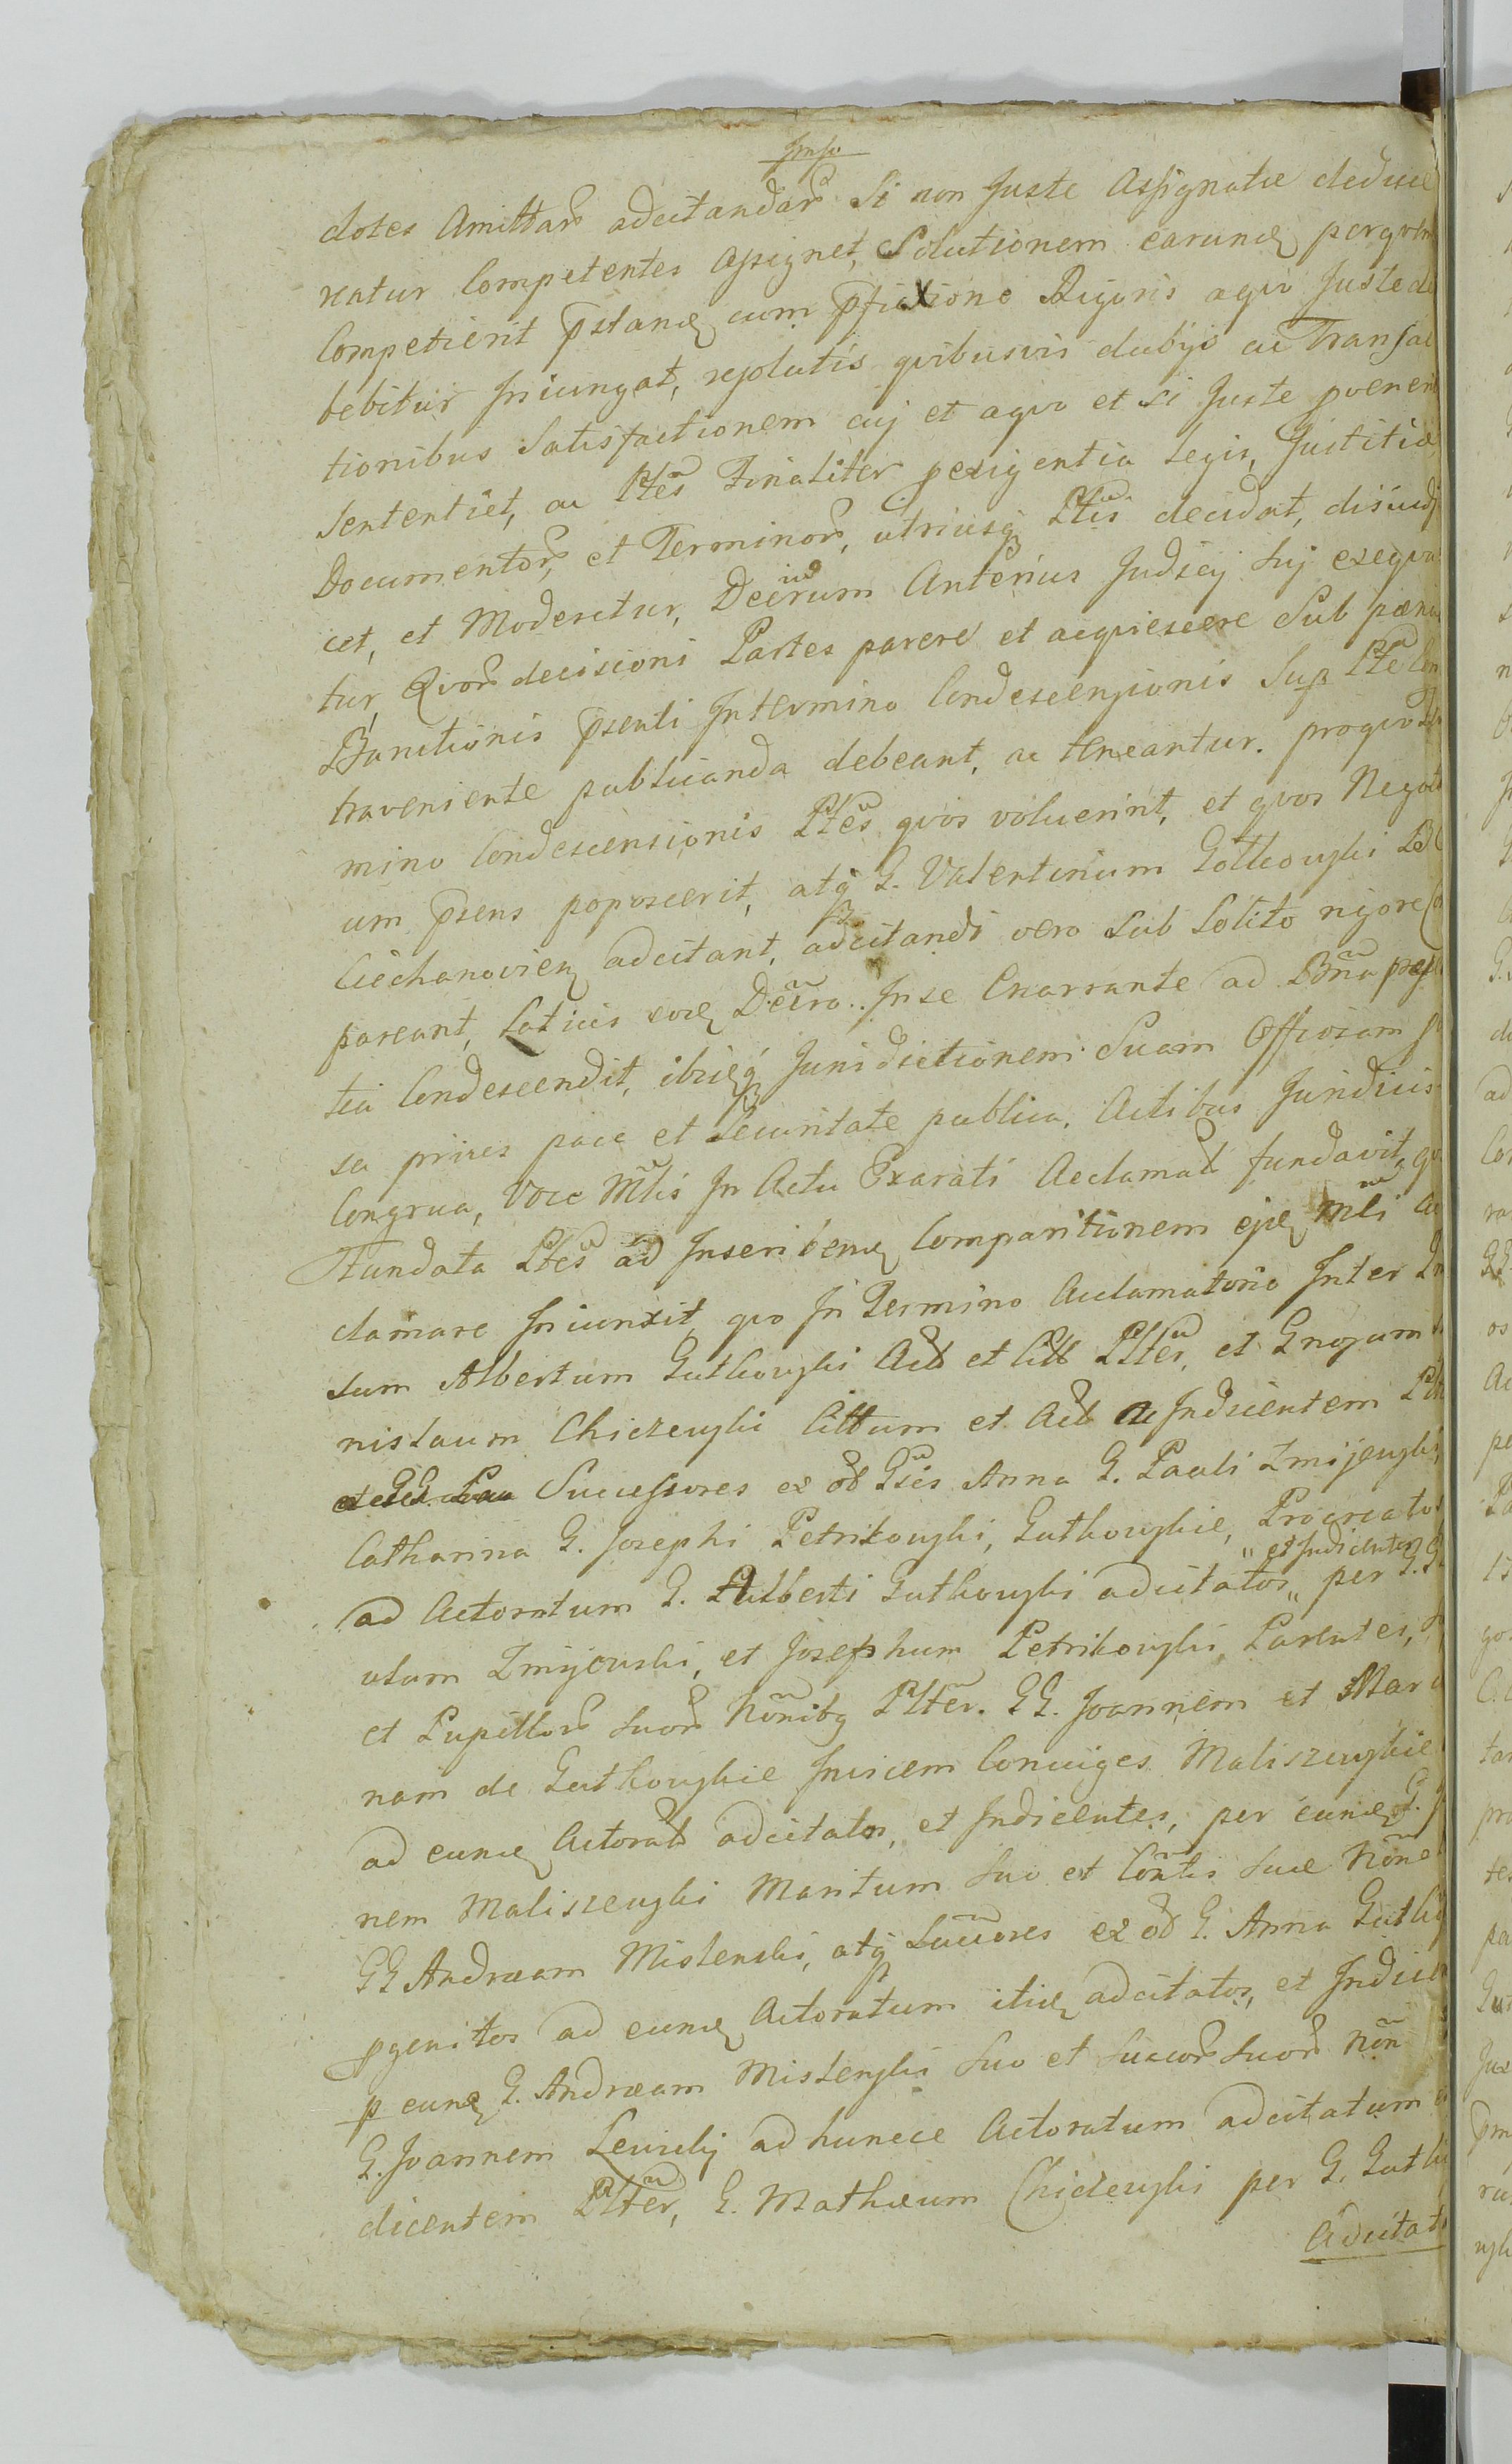 dotes Amittar adcitandar Si non Juste Assignatæ deduce
natur Competentes Assignet, Solutionem earund pergven
Competierit pstand cum pfixione Rigoris aqvo Juste de
bebitur Iniungat, resolutis qvibusvis dubijs ac Transac
tionibus Satisfactionem cuj et aqvo et si Juste pvenerit
Sententiet, ac Ptes Finaliter pexigentia Legis, Justitiæ
Documentor, et Terminor, utriusq Ptis decidat, disiudi
cet, et Moderetur, Decrum Anterius Judicij Suj exeqva
tur, Qvor decisioni Partes parere et acqviescere Sub pæna
Banitionis psenti In termino Condescensionis Sup Pte Con
traveniente publicanda debeant, ac teneantur. proqvo
mino Condescensionis Ptes qvos voluerint, et qvos Negoti
um psens poposcerit, atq G. Valentinum Gotkowski
Ciechanovien adcitant, adcitandi vero Sub Solito rigore
pareant, Latius eod Decro. In se Enarrante ad Bna
tia Condescendit, ibidq Jurisdictionem Suam Officiosam
sa prius pace et Securitate publica, Actibus Juridicis
Congrua, Voce Mlis In Actu Exarati Acclamat fundavit, qva
Fundata Ptes ad Inscribend Comparitionem ejd Mli Ac
clamare Iniunxit, qvo In Termino Acclamatorio Inter
sum Albertum Gutkowski Act et Citt Plter, et Gnosum
nislaum Chiczewski Cittum et Act ac Indicentem
Successores ex od Gsis Anna G. Pauli Zmijewski,
Catharina G. Josephi Petrikowski, Gutkowskie, Procreatos
ad Actoratum G. Alberti Gutkowski adcitatos „et Indicentes„ per G.G.
ulum Zmijewski, et Josephum Petrikowski, Parentes,
et Pupillor suor Nonibq Plter. GG. Joannem et Mari
nam de Gutkowskie Invicem Coniuges Maliszewskie
ad eund Actorat adcitatos, et Indicentes, per eund G.
nem Maliszewski Maritum suo et Contis suæ None
GG Andræam Mislenski, atq Succores ex od G. Anna Gutko
pgenitos ad eund Actoratum itid adcitatos, et Indice
p eund G. Andræam Mislenski suo et Succor suor Non
G. Joannem Lewicky ad huncce Actoratum adcitatum
dicentem Plter, G. Mathæum Chiczewski per G. Gutko
Adcitat